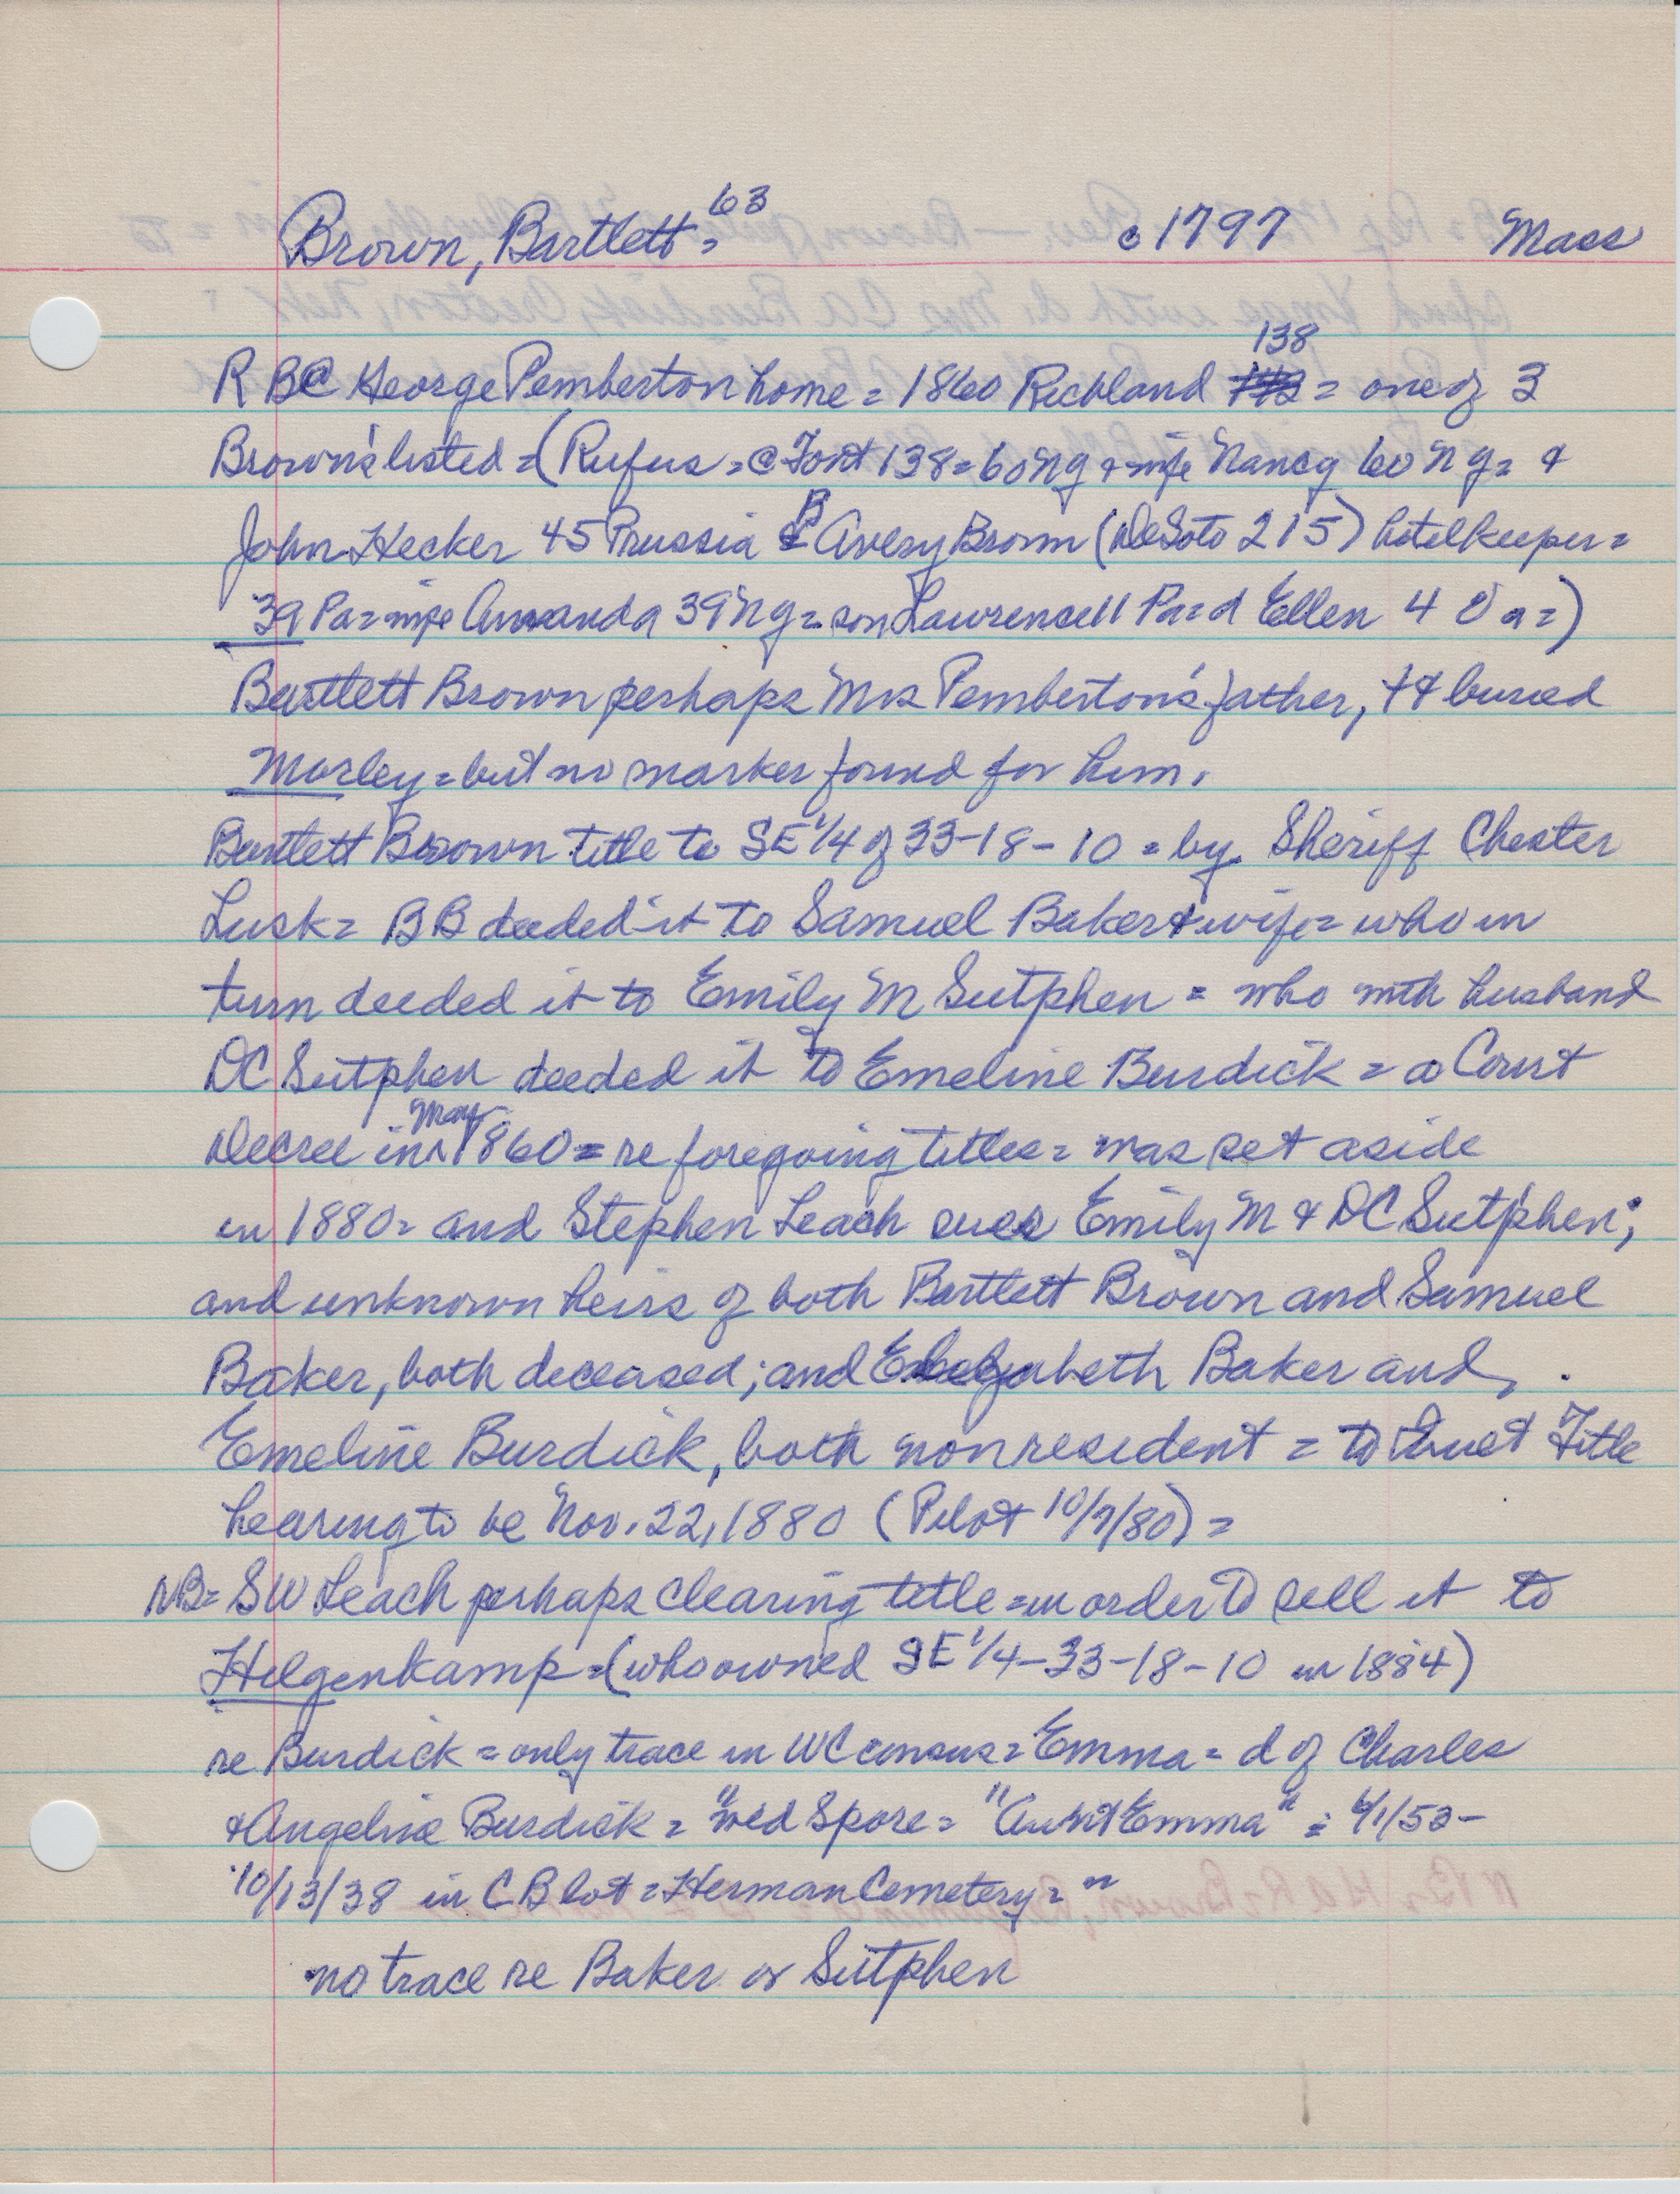 Brown, Bartlett = 63 c 1797 Mass
138
R B @ George Pemberton home = 1860 Richland = one of 3
Brown's listed = (Rufus = @ Font 138 = 60 Ny & wife Nancy 60 Ny = &
John Hecker 45 Prussia B Avery Brown (DeSoto 215) hotelkeeper =
39 Pa = wife Amanda 39 Ny = son Lawrence 11 Pa = d Ellen 4 =)
Bartlett Brown perhaps Mrs Pemberton's father, & buried
Morley = but no marker found for him.
Bartlett Brown title to SE 1/4 of 33-18-10 = by Sheriff Chester
Lusk = BB deeded it to Samuel Baker & wife = who in
turn deeded it to Emily M Sutphen = who with husband
DC Sutphen deeded it to Emeline Burdick = a Court
Decree in May 1860 = re foregoing titles = was set aside
in 1880 = and Stephen Leach sues Emily M & DC Sutphen;
and unknown heirs of both Bartlett Brown and Samuel
Baker, both deceased; and Elizabeth Baker and
Emeline Burdick, both nonresident = to Title
hearing to be Nov. 22, 1880 (Pilot 10/7/80) =
NB = SW Leach perhaps clearing title = in order to sell it to
Hilgenkamp = (who owned SE 1/4-33-18-10 in 1884)
re Burdick = only trace in WC census = Emma = d of Charles
& Angeline Burdick = "wed Spore = "Aunt Emma" = /1/53-
10/13/38 in CB lot = Herman Cemetery = "
no trace re Baker or Sutphen